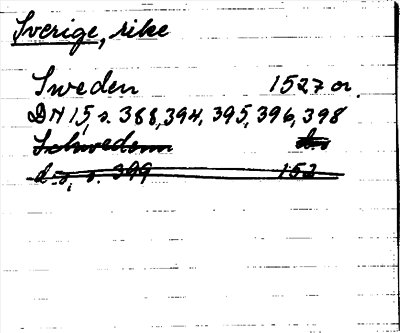 Sverige, rike
Sweden 1527 or.
DN 15, s. 388, 394, 395, 396, 398
Schwedenn do
d.s., s. 399 152